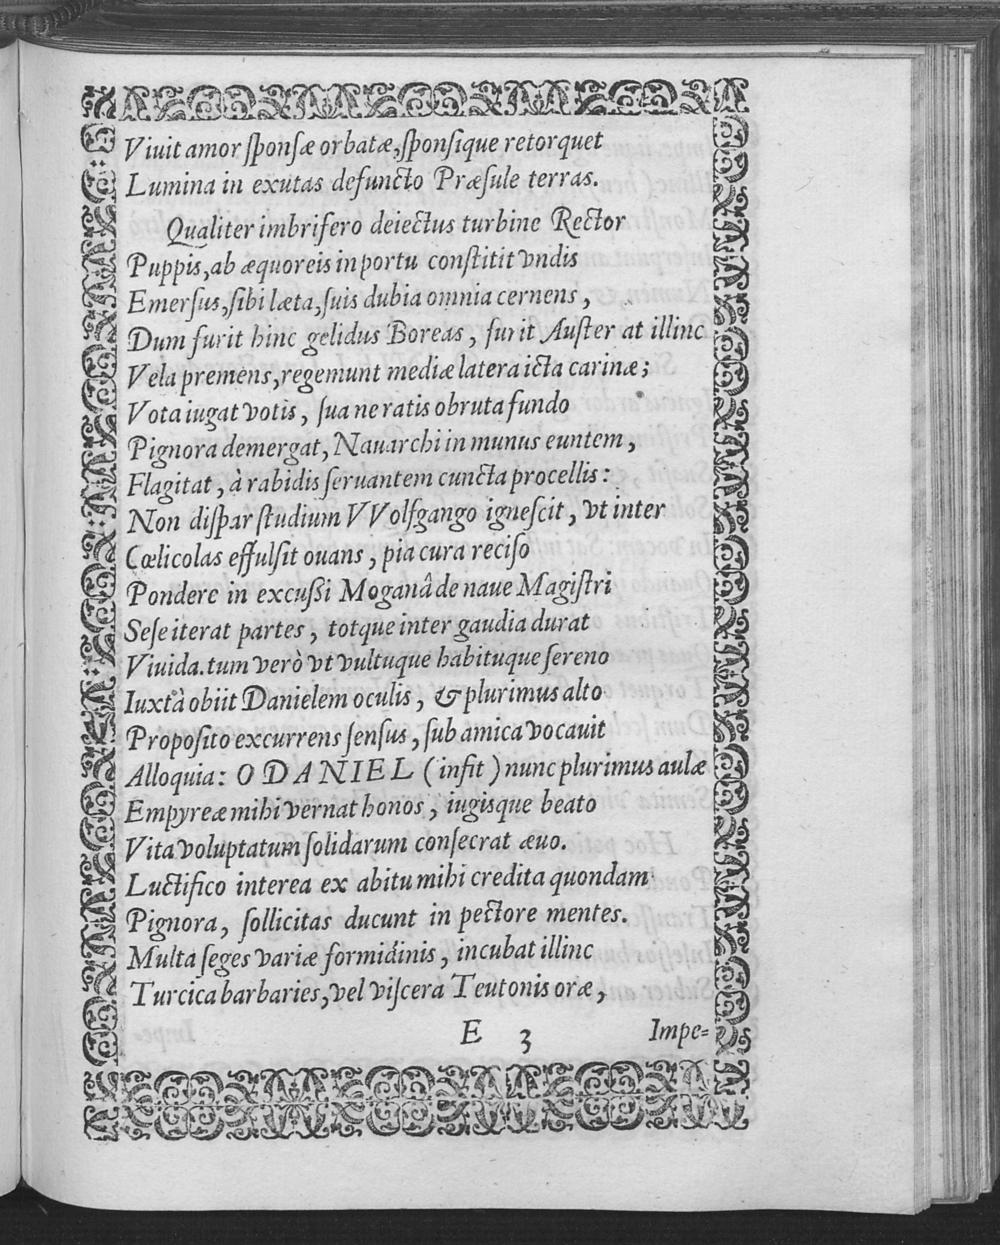 Viuit amor ſponſæ orbatæ, ſponſique retorquet
Lumina in exutas defuncto Præſule terras.
Qualiter imbrifero deiectus turbine Rector
Puppis, ab æquoreis in portu conſtitit vndis
Emerſus, ſibi læta, ſuis dubia omnia cernens,
Dum furit hinc gelidus Boreas, furit Auſter at illinc
Vela premens, regemunt mediæ latera icta carinæ;
Vota iugat votis, ſua ne ratis obruta fundo
Pignora demergat, Nauarchi in munus euntem,
Flagitat, à rabidis ſeruantem cuncta procellis:
Non diſpar ſtudium VVolfgango igneſcit, vt inter
Cœlicolas effulſit ouans, pia cura reciſo
Pondere in excuſſi Moganâ de naue Magiſtri
Seſe iterat partes, totque inter gaudia durat
Viuida. tum verò vt vultuque habituque ſereno
Iuxtà obiit Danielem oculis, & plurimus alto
Propoſito excurrens ſenſus, ſub amica vocauit
Alloquia: O DANIEL (infit) nunc plurimus aulæ
Empyreæ mihi vernat honos, iugisque beato
Vita voluptatum ſolidarum conſecrat æuo.
Luctifico interea ex abitu mihi credita quondam
Pignora, ſollicitas ducunt in pectore mentes.
Multa ſeges variæ formidinis, incubat illinc
Turcica barbaries, vel viſcera Teutonis oræ,
E 3 Impe=